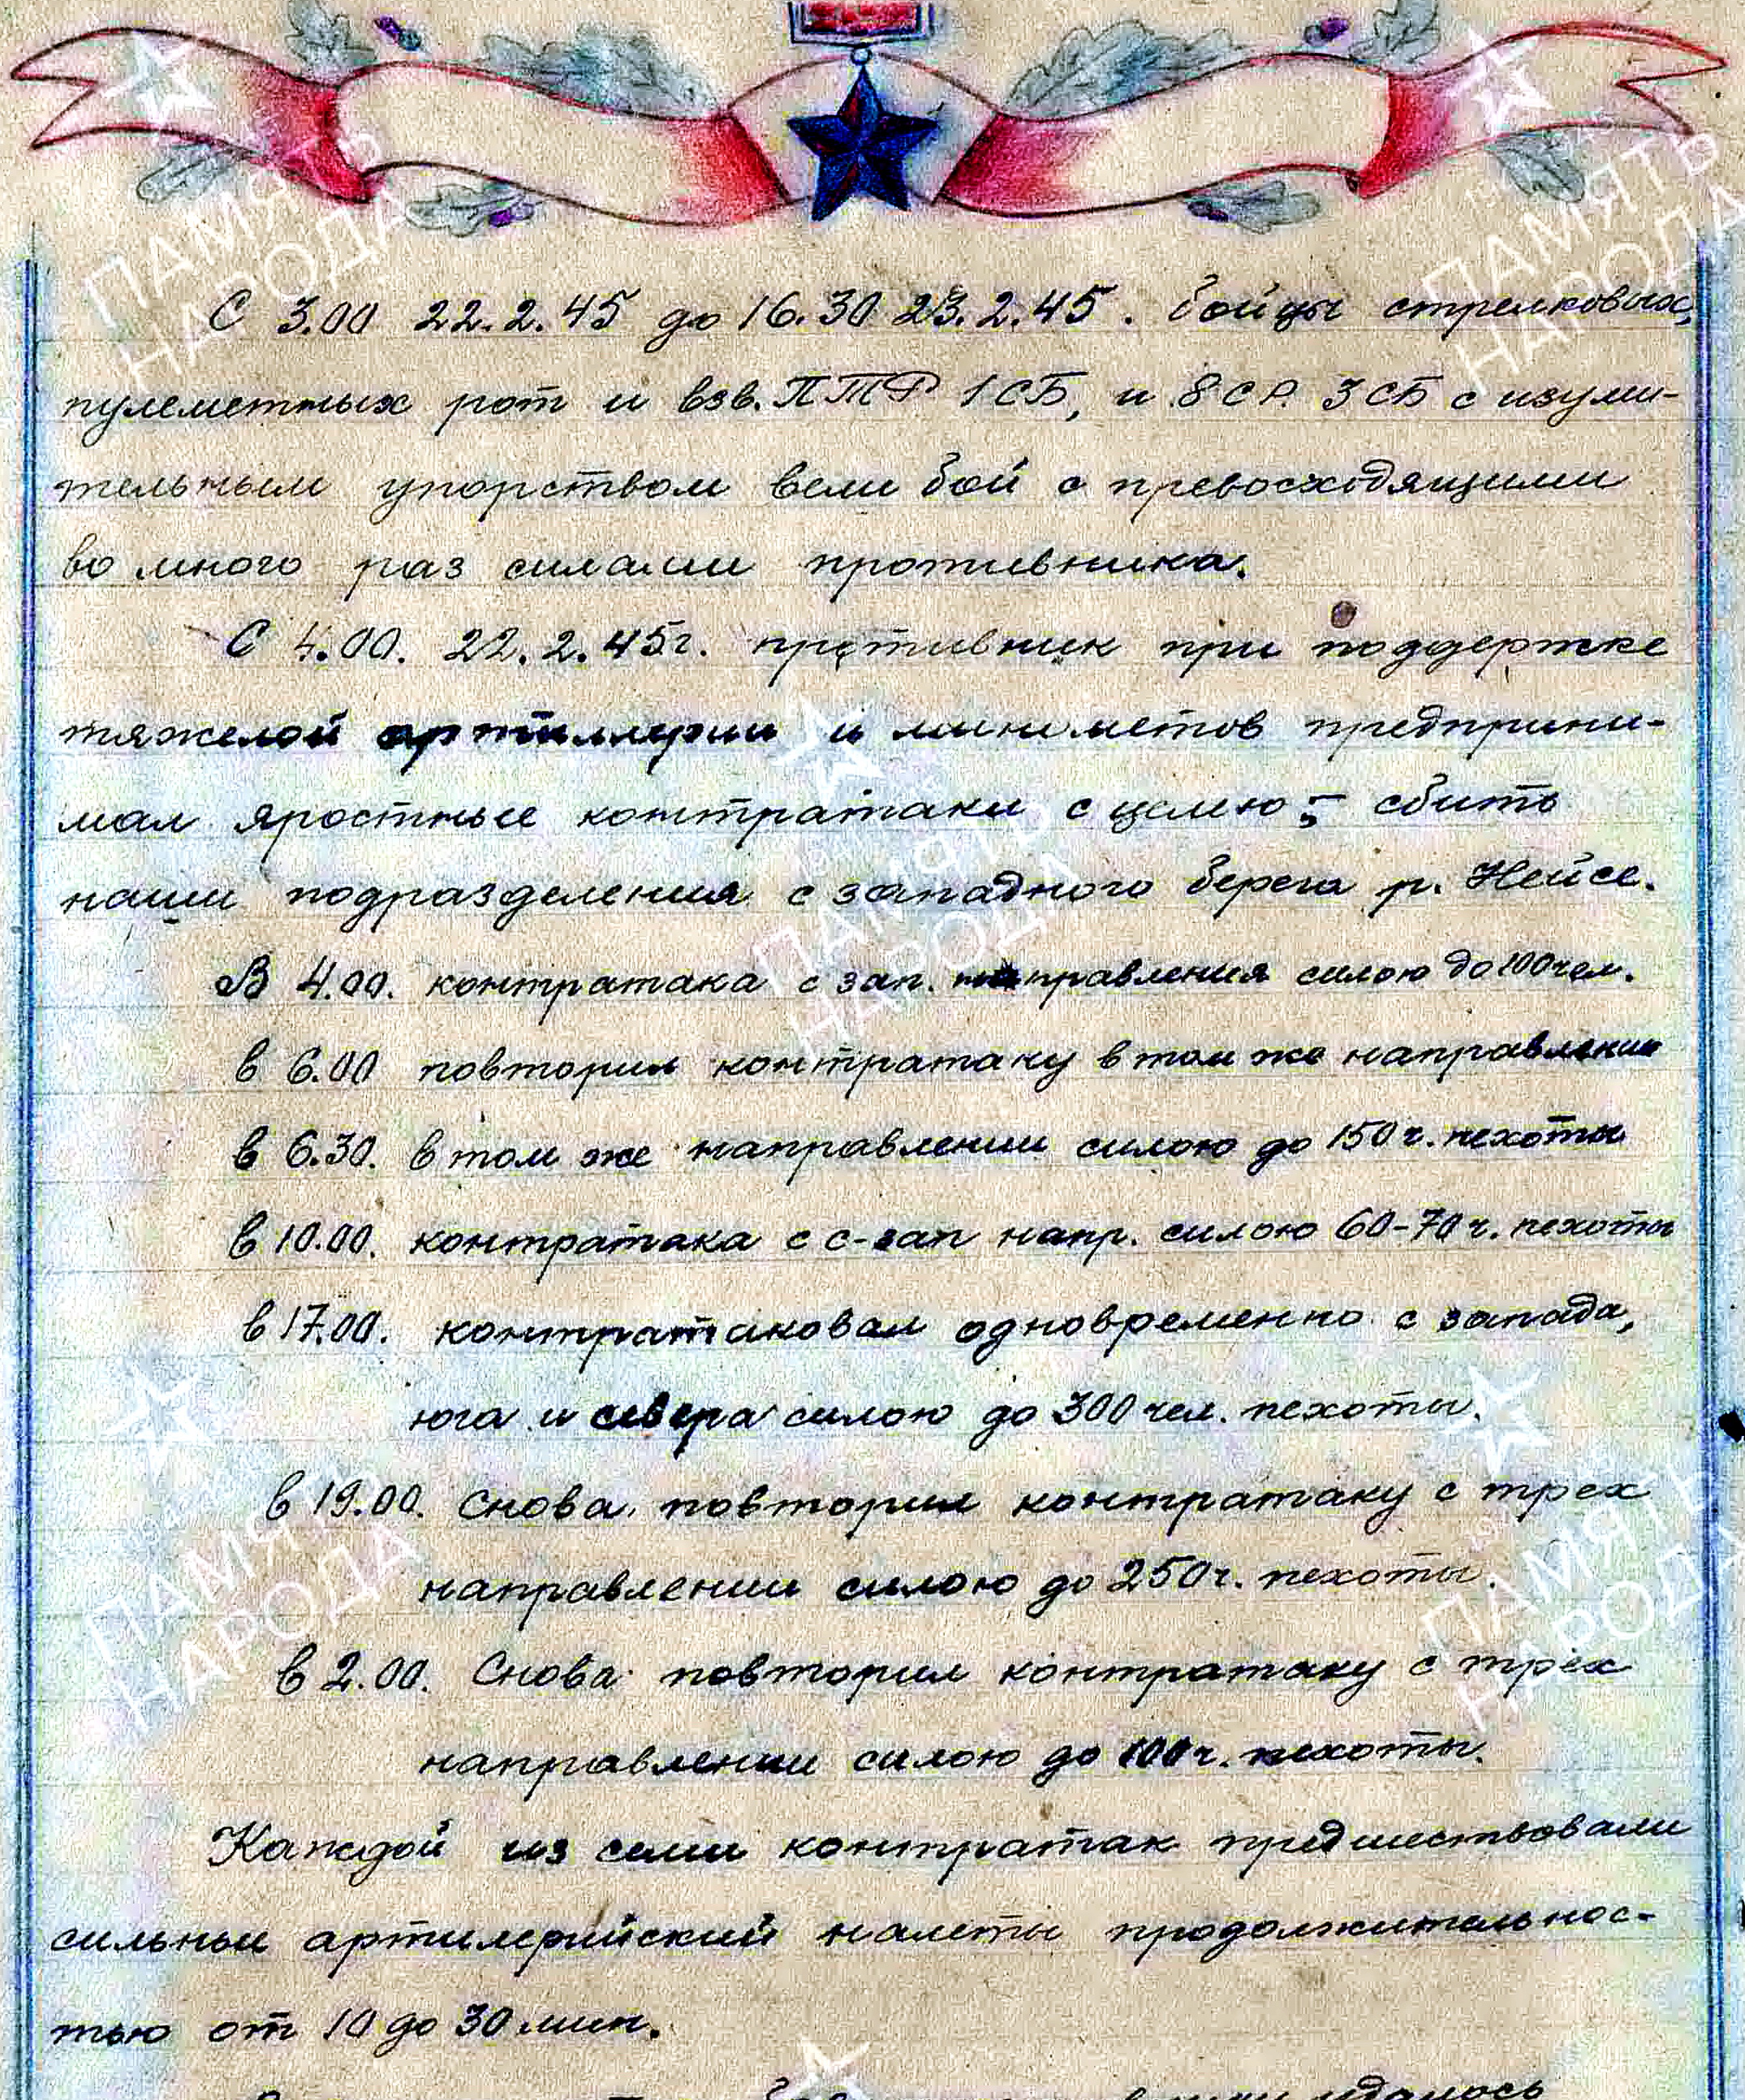 С 3.00 22.2.45 до 16.30 23.2.45. бойцы стрелковых,
пулеметных рот и взв. ПТР 1СБ, и 8СР. 3СБ с изуми-
тельным упорством вели бой с превосходящими
во много раз силами противника.
С 4.00. 22.2.45г. противник при поддержке
тяжелой артиллерии и минометов предприни-
мал яростные контратаки с целью:- сбить
наши подразделения с западного берега р. Нейсе.
В 4.00. контратака с зап. направления силою до 100 чел.
в 6.00 повторил контратаку в том же направлении
в 6.30. в том же направлении силою до 150 ч. пехоты
в 10.00. контратака с с-зап напр. силою 60-70 ч. пехоты
в 17.00. контратаковал одновременно с запада,
юга и севера силою до 300 чел. пехоты.
в 19.00. Снова повторил контратаку с трех
направлении силою до 250 ч. пехоты.
в 2.00. Снова повторил контратаку с трех
направлении силою до 100 ч. пехоты.
Каждой из семи контратак предшествовали
сильные артилерийский налеты продолжительнос-
тью от 10 до 30 мин.
удалось
ПАМЯТЬ
НАРОДА
ПАМЯТЬ
НАРОДА
ПАМЯТЬ
НАРОДА
ПАМЯТЬ
НАРОДА
ПАМЯТЬ
НАРОДА